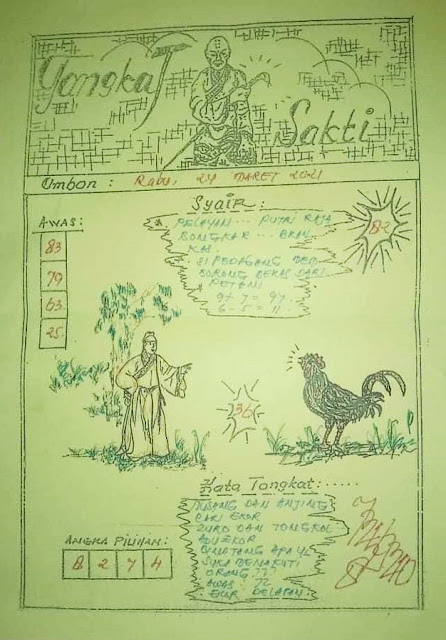 Tongkat Sakti
Ombon : Rabu, 24 Maret 2021
Syair :
PELAYAN ... PUTRI RAJA
BONGKAR ... BRAN
KAS
SI PEDAGANG
BORONG BEKAS DARI
PETANI
9 + 7 = 97
6 - 5 = 11
82
AWAS :
83
79
63
25
36
Kata Tongkat: ......
MUSANG DAN ANJING
CARI EKOR
ZURO DAN TONGKOL
ADU EKOR
BINATANG APA YG
SUKA MENAKUTI
ORANG ???
AWAS : 72
EKOR DELAPAN
ANGKA PILIHAN :
8 2 7 4